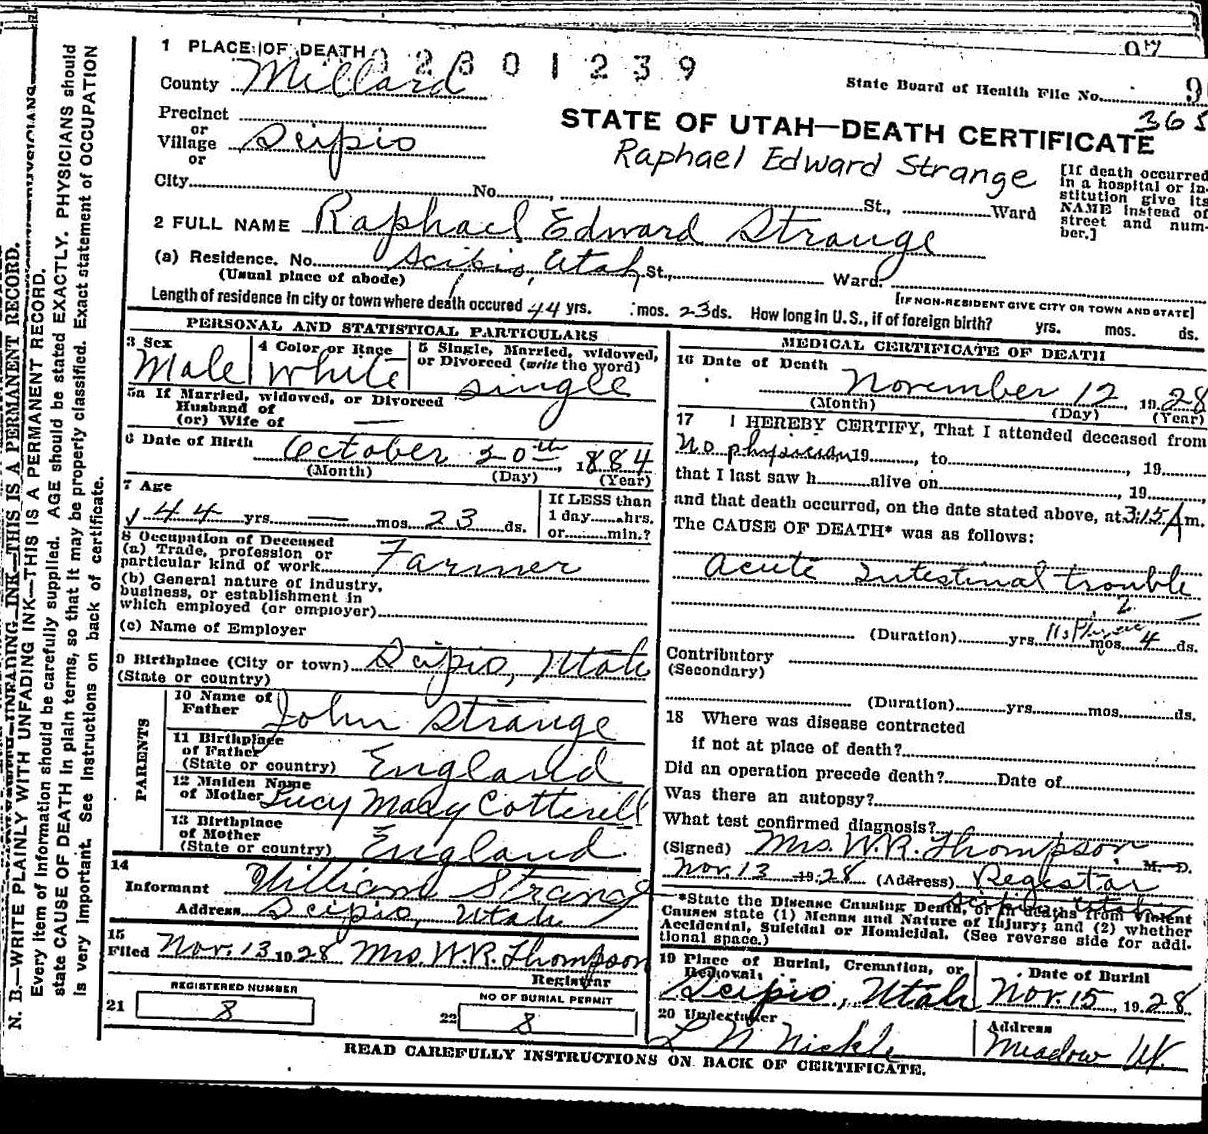 1 PLACE OF DEATH 02301239
County Millard
State Board of Health File No. 9
365
Precinct
or
Village Scipio
or
STATE OF UTAH—DEATH CERTIFICATE
Raphael Edward Strange
City No. St., Ward
[If death occurred in a hospital or institution give its NAME instead of street and number.]
2 FULL NAME Raphael Edward Strange
(a) Residence. No. Scipio, Utah, St., Ward.
(Usual place of abode)
[IF NON-RESIDENT GIVE CITY OR TOWN AND STATE]
Length of residence in city or town where death occured 44 yrs. mos. 23 ds. How long in U. S., if of foreign birth? yrs. mos. ds.
PERSONAL AND STATISTICAL PARTICULARS
3 Sex
Male
4 Color or Race
White
5 Single, Married, widowed, or Divorced (write the word)
single
5a If Married, widowed, or Divorced
Husband of
(or) Wife of —
6 Date of Birth October 20th, 1884
(Month) (Day) (Year)
7 Age
44 yrs. — mos. 23 ds.
If LESS than
1 day......hrs.
or......min.?
8 Occupation of Deceased
(a) Trade, profession or
particular kind of work Farmer
(b) General nature of industry,
business, or establishment in
which employed (or employer)
(c) Name of Employer
9 Birthplace (City or town) Scipio, Utah
(State or country)
PARENTS
10 Name of
Father John Strange
11 Birthplace
of Father
(State or country) England
12 Maiden Name
of Mother Lucy Mary Cotterill
13 Birthplace
of Mother
(State or country) England
14
Informant William Strange
Address Scipio, Utah
15
Filed Nov. 13 1928 Mrs. W.R. Thompson
Registrar
21 REGISTERED NUMBER
8
22 NO OF BURIAL PERMIT
8
MEDICAL CERTIFICATE OF DEATH
16 Date of Death
November 12, 1928
(Month) (Day) (Year)
17 I HEREBY CERTIFY, That I attended deceased from
No physician 19, to, 19
that I last saw h alive on, 19
and that death occurred, on the date stated above, at 3:15 A m.
The CAUSE OF DEATH* was as follows:
Acute Intestinal trouble
(Duration) yrs. mos. 4 ds.
Contributory
(Secondary)
(Duration) yrs. mos. ds.
18 Where was disease contracted
if not at place of death?
Did an operation precede death? Date of
Was there an autopsy?
What test confirmed diagnosis?
(Signed) Mrs. W.R. Thompson, M. D.
Nov. 13 1928 (Address) Registar
Scipio Utah
*State the Disease Causing Death, or in deaths from Violent
Causes state (1) Means and Nature of Injury; and (2) whether
Accidental, Suicidal or Homicidal. (See reverse side for addi-
tional space.)
19 Place of Burial, Cremation, or
Removal:
Scipio, Utah
Date of Burial
Nov. 15 1928
20 Undertaker
L N Nickle
Address
Meadow Ut.
READ CAREFULLY INSTRUCTIONS ON BACK OF CERTIFICATE.
N. B.—WRITE PLAINLY WITH UNFADING INK—THIS IS A PERMANENT RECORD.
Every item of information should be carefully supplied. AGE should be stated EXACTLY. PHYSICIANS should
state CAUSE OF DEATH in plain terms, so that it may be properly classified. Exact statement of OCCUPATION
is very important. See instructions on back of certificate.